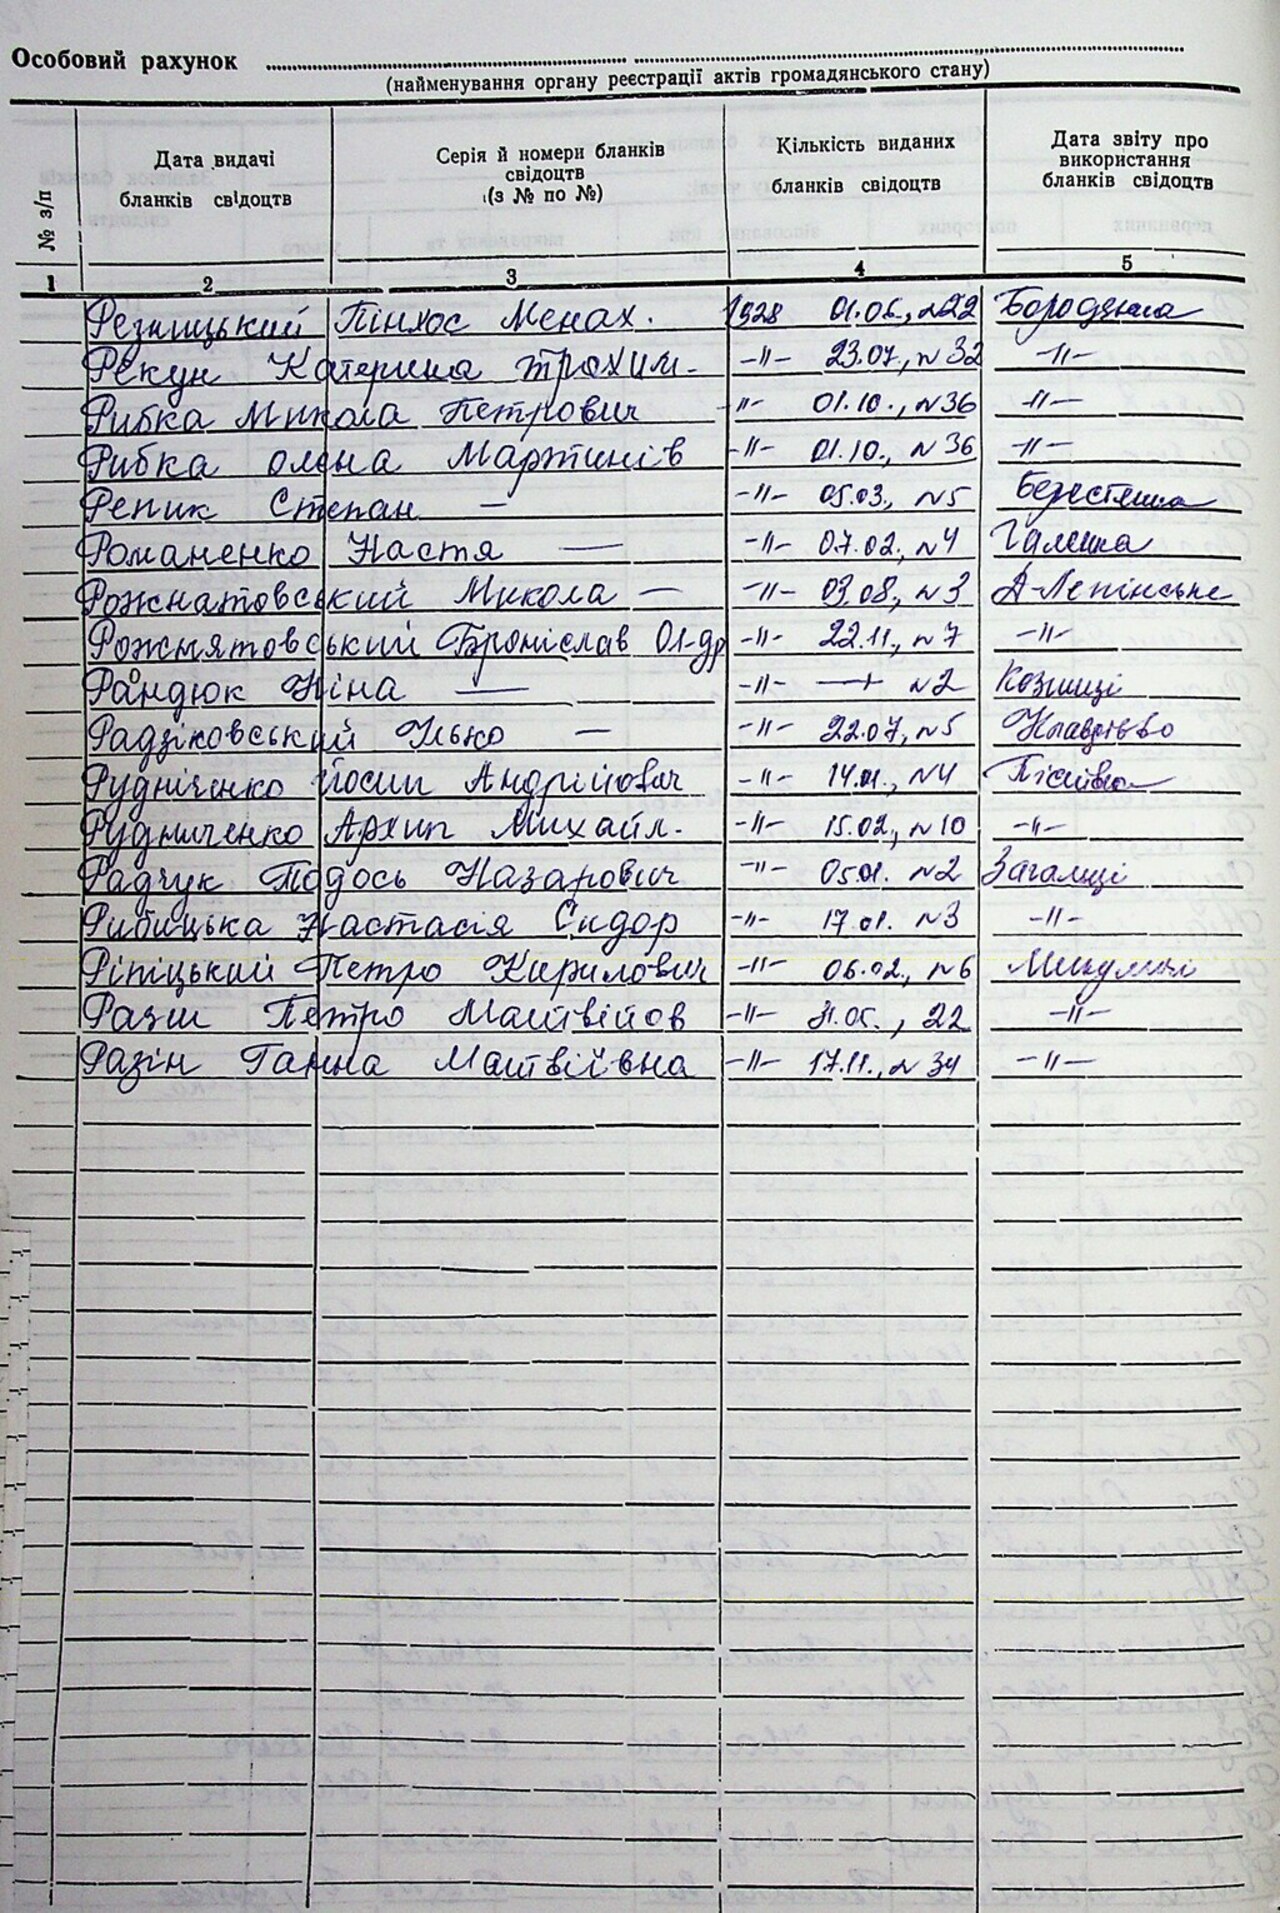 Особовий рахунок
(найменування органу реєстрації актів громадянського стану)
№ з/п
Дата видачі бланків свідоцтв
Серія й номери бланків свідоцтв (з № по №)
Кількість виданих бланків свідоцтв
Дата звіту про використання бланків свідоцтв
1 2 3 4 5
Резницький Пінхос Менах. 1928 01.06., №22 Бородянка
Рекун Катерина Трохим. -"- 23.07., №32 -"-
Рибка Микола Петрович -"- 01.10., №36 -"-
Рибка Олена Мартинів -"- 01.10., №36 -"-
Репик Степан — -"- 05.03., №5 Берестянка
Романенко Настя — -"- 07.02., №4 Галинка
Рожнатовський Микола — -"- 03.08., №3 Д-Лепінське
Рожнятовський Броніслав Ол-др -"- 22.11., №7 -"-
Рандюк Ніна — -"- — №2 Козинці
Радзіковський Ілько — -"- 22.07, №5
Рудніченко Йосип Андрійович -"- 14.01., №4 Пісківка
Рудниченко Архип Михайл. -"- 15.02., №10 -"-
Радчук Тодось Назарович -"- 05.01. №2 Загальці
Рибицька Настасія Сидор -"- 17.01. №3 -"-
Ріпіцький Петро Кирилович -"- 06.02., №6 Микуличі
Разін Петро Матвійов -"- 31.05., 22 -"-
Разін Ганна Матвіївна -"- 17.11., №34 -"-